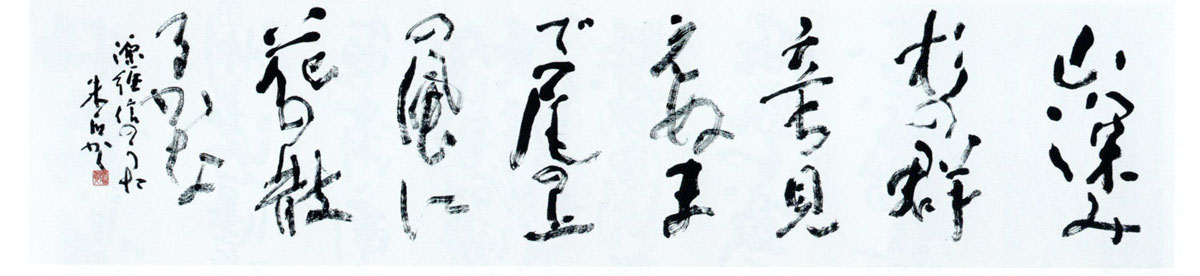 山深み
杉の群
立ち見
えぬま
で尾上
の風に
花の散
るかな
源経信のうた